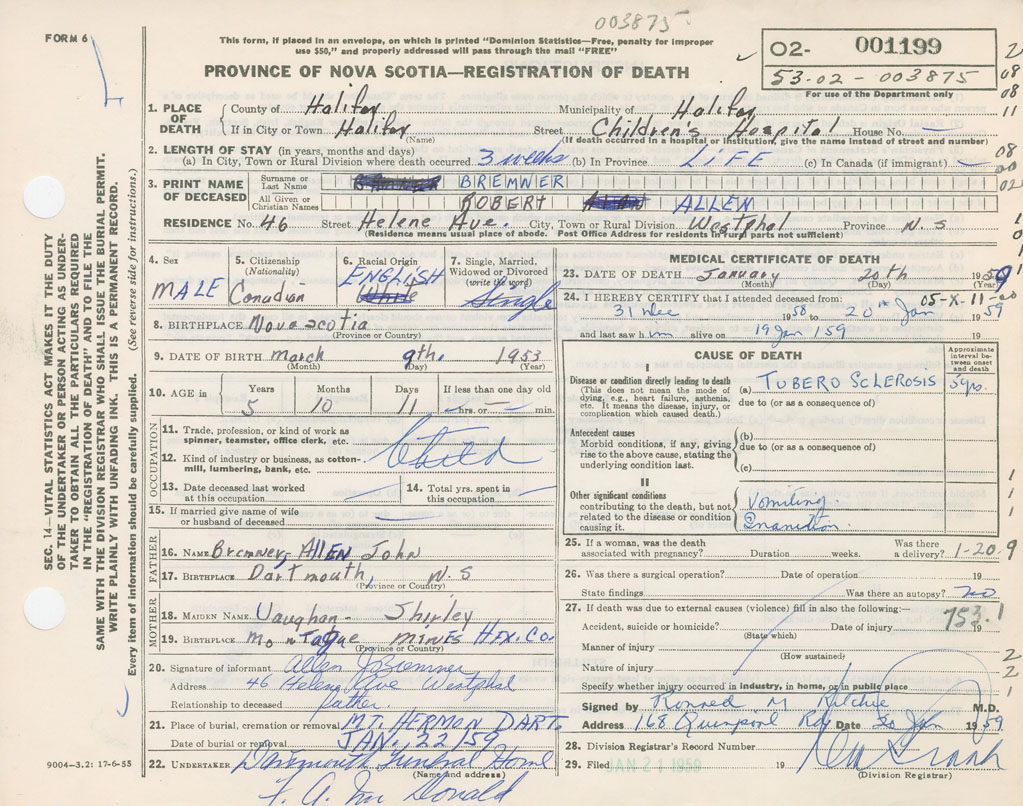 003875
FORM 6
This form, if placed in an envelope, on which is printed "Dominion Statistics—Free, penalty for improper
use $50," and properly addressed will pass through the mail "FREE"
PROVINCE OF NOVA SCOTIA—REGISTRATION OF DEATH
02- 001199
53-02-003875
For use of the Department only
1. PLACE OF DEATH County of Halifax Municipality of Halifax
If in City or Town Halifax Street Children's Hospital House No. —
(Name) (If death occurred in a hospital or institution, give the name instead of street and number)
2. LENGTH OF STAY (in years, months and days)
(a) In City, Town or Rural Division where death occurred 3 weeks (b) In Province LIFE (c) In Canada (if immigrant) —
3. PRINT NAME OF DECEASED Surname or Last Name BREMNER
All Given or Christian Names ROBERT ALLEN
RESIDENCE No. 46 Street Helene Ave. City, Town or Rural Division Westphal Province N.S
(Residence means usual place of abode. Post Office Address for residents in rural parts not sufficient)
4. Sex MALE
5. Citizenship (Nationality) Canadian
6. Racial Origin ENGLISH White
7. Single, Married, Widowed or Divorced (write the word) Single
8. BIRTHPLACE Nova Scotia
(Province or Country)
9. DATE OF BIRTH March 9th. 1953
(Month) (Day) (Year)
10. AGE in Years 5 Months 10 Days 11 If less than one day old — hrs. or — min.
OCCUPATION
11. Trade, profession, or kind of work as spinner, teamster, office clerk, etc.
12. Kind of industry or business, as cotton-mill, lumbering, bank, etc. Child
13. Date deceased last worked at this occupation —
14. Total yrs. spent in this occupation —
15. If married give name of wife or husband of deceased —
FATHER
16. NAME Bremner, ALLEN John
17. BIRTHPLACE Dartmouth, N.S
(Province or Country)
MOTHER
18. MAIDEN NAME Vaughan- Shirley
19. BIRTHPLACE Montague MINES HFX. CO.
(Province or Country)
20. Signature of informant Allen J Bremner
Address 46 Helene Ave Westphal
Relationship to deceased father.
21. Place of burial, cremation or removal MT. HERMON DART.
Date of burial or removal JAN. 22/59
22. UNDERTAKER Dartmouth Funeral Home
(Name and address)
F. A. McDonald
9004-3.2: 17-6-55
MEDICAL CERTIFICATE OF DEATH
23. DATE OF DEATH January 20th 1959
(Month) (Day)
05-X-11-00
24. I HEREBY CERTIFY that I attended deceased from:
31 Dec 1958 to 20th Jan 1959
and last saw him alive on 19 Jan 159
CAUSE OF DEATH
Approximate interval between onset and death
I
Disease or condition directly leading to death (a) TUBERO SCLEROSIS 5 yrs.
(This does not mean the mode of dying, e.g., heart failure, asthenia, etc. It means the disease, injury, or complication which caused death.)
due to (or as a consequence of)
Antecedent causes
Morbid conditions, if any, giving rise to the above cause, stating the underlying condition last.
(b)
due to (or as a consequence of)
(c)
II
Other significant conditions contributing to the death, but not related to the disease or condition causing it.
Vomiting.
Inanition
25. If a woman, was the death associated with pregnancy? Duration weeks. Was there a delivery? 1-20-9
26. Was there a surgical operation? Date of operation 19
State findings Was there an autopsy? no
27. If death was due to external causes (violence) fill in also the following:—
753.1
Accident, suicide or homicide? Date of injury 19
(State which)
Manner of injury
(How sustained)
Nature of injury
Specify whether injury occurred in industry, in home, or in public place
Signed by Konrad M Ritchie M.D.
Address 168 Quinpool Rd Date 20 Jan 1959
28. Division Registrar's Record Number
29. Filed JAN 21 1959 19
(Division Registrar)
SEC. 14—VITAL STATISTICS ACT MAKES IT THE DUTY
OF THE UNDERTAKER OR PERSON ACTING AS UNDER-
TAKER TO OBTAIN ALL THE PARTICULARS REQUIRED
IN THE "REGISTRATION OF DEATH" AND TO FILE THE
SAME WITH THE DIVISION REGISTRAR WHO SHALL ISSUE THE BURIAL PERMIT.
WRITE PLAINLY WITH UNFADING INK. THIS IS A PERMANENT RECORD.
Every item of information should be carefully supplied. (See reverse side for instructions.)
2
08
08
11
08
00
02
1
0
1
1
1
1
2
2
1